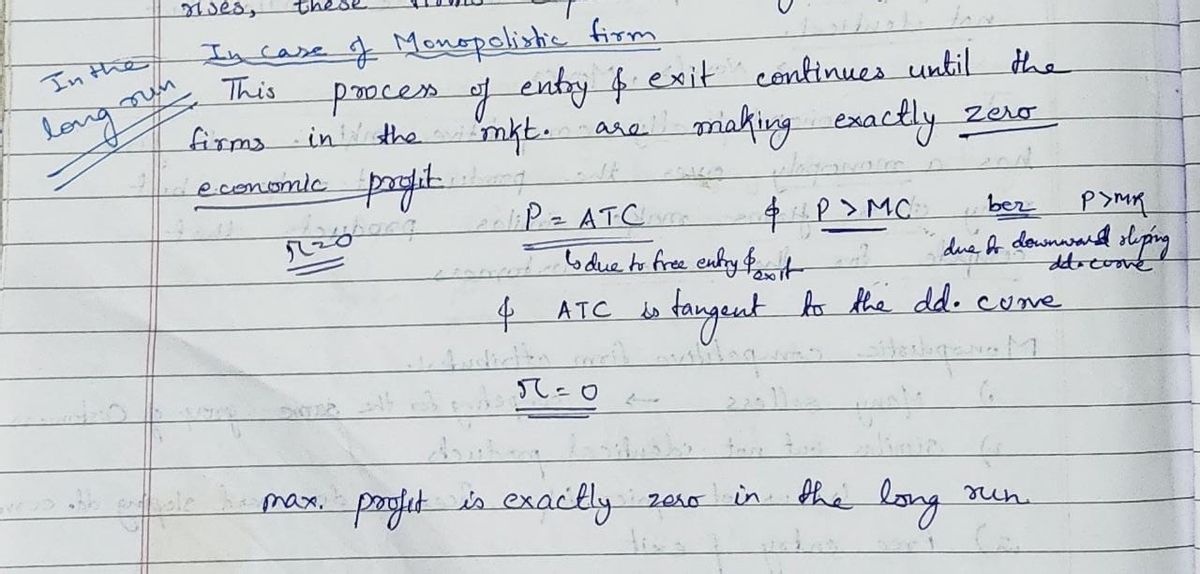 rises, these
In case of Monopolistic firm
In the
long run
This process of entry & exit continues until the
firms in the mkt. are making exactly zero
economic profit
P = ATC & P > MC bcz P > MR
π = 0
↳ due to free entry & exit
due to downward sloping
dd. curve
& ATC is tangent to the dd. curve
π = 0
max. profit is exactly zero in the long run